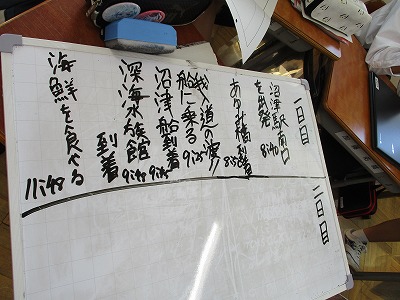 一日目
沼津駅南口
を出発 8:40
あゆみ橋到着
8:50
我入道の渡し
船に乗る 9:25
沼津船到着
9:45
深海水族館
到着 9:48
海鮮を食べる
11:48
二日目